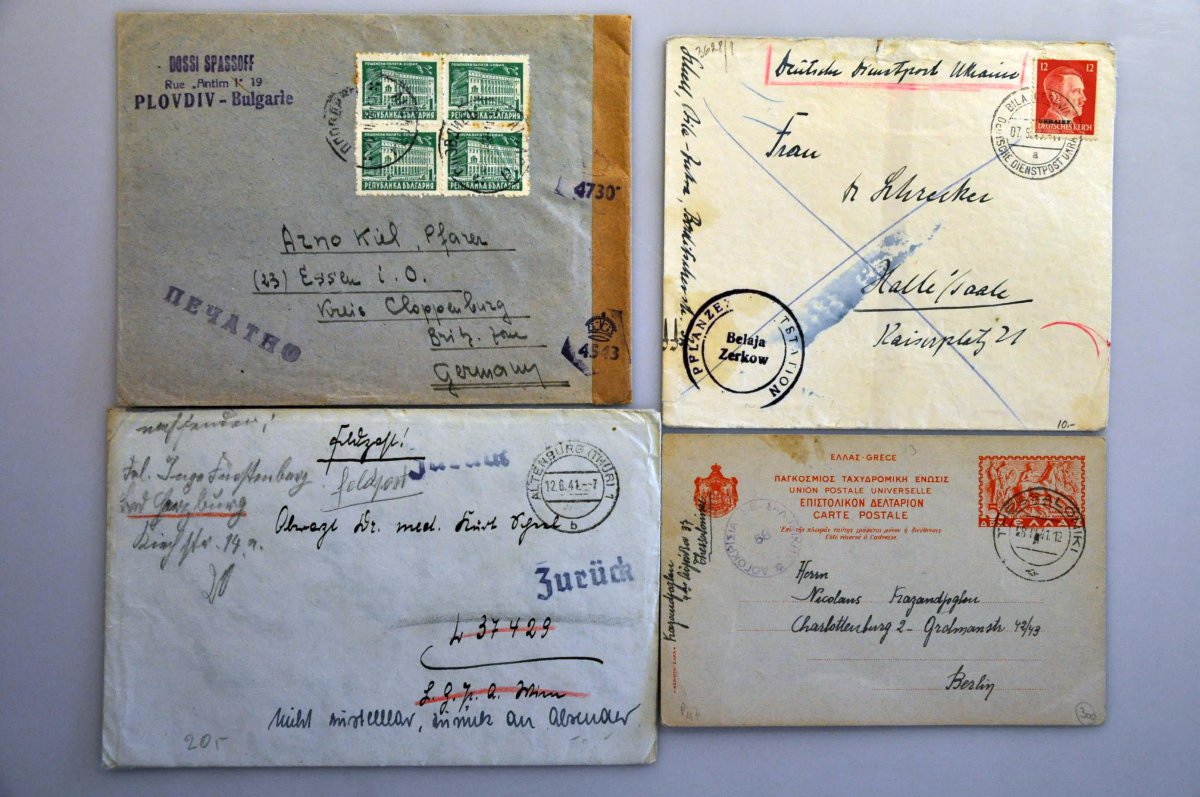 DOSSI SPASSOFF
Rue „Antim I" 19
PLOVDIV - Bulgarie
ПОЩЕНСКА ПАЛАТА-СОФИЯ
ПОЩЕНСКА ПАЛАТА-СОФИЯ
РЕПУБЛИКА БЪЛГАРИЯ
РЕПУБЛИКА БЪЛГАРИЯ
РЕПУБЛИКА БЪЛГАРИЯ
РЕПУБЛИКА БЪЛГАРИЯ
4730
Arno Kiel, Pfarer
(23) Essen i. O.
Kreis Cloppenburg
Britz. Zone
Germany
ПЕЧАТНО
4543
2628/1
Deutsche Dienstpost Ukraine
12 12
UKRAINE
DEUTSCHES REICH
BILA
07.
a
DEUTSCHE DIENSTPOST UKRAINE
Frau
Dr Schrecker
Halle/Saale
Kaiserplatz 21
PFLANZE TSTATION
Belaja
Zerkow
10.-
nachsenden!
Frl. Inge Fürstenberg
Bad Harzburg
Kirchstr. 19 a.
Feldpost!
feldpost
Zurück
ALTENBURG (THÜR) 1
12.6.41.-7
b
Obarzt Dr. med. Kurt
Zurück
L 37429
L.G.P.A. Wien
Nicht zustellbar, zurück an Absender
20.-
ΕΛΛΑΣ-GRÈCE
ΠΑΓΚΟΣΜΙΟΣ ΤΑΧΥΔΡΟΜΙΚΗ ΕΝΩΣΙΣ
UNION POSTALE UNIVERSELLE
ΕΠΙΣΤΟΛΙΚΟΝ ΔΕΛΤΑΡΙΟΝ
CARTE POSTALE
Ἐπὶ τῆς πλευρᾶς ταύτης γράφεται μόνον ἡ διεύθυνσις
Côté réservé à l'adresse
ΕΛΛΑΣ
THESSALONIKI
Thessaloniki
Herrn
Nicolaus Kazandjoglou
Charlottenburg 2 - Grolmanstr 42/43
Berlin
300